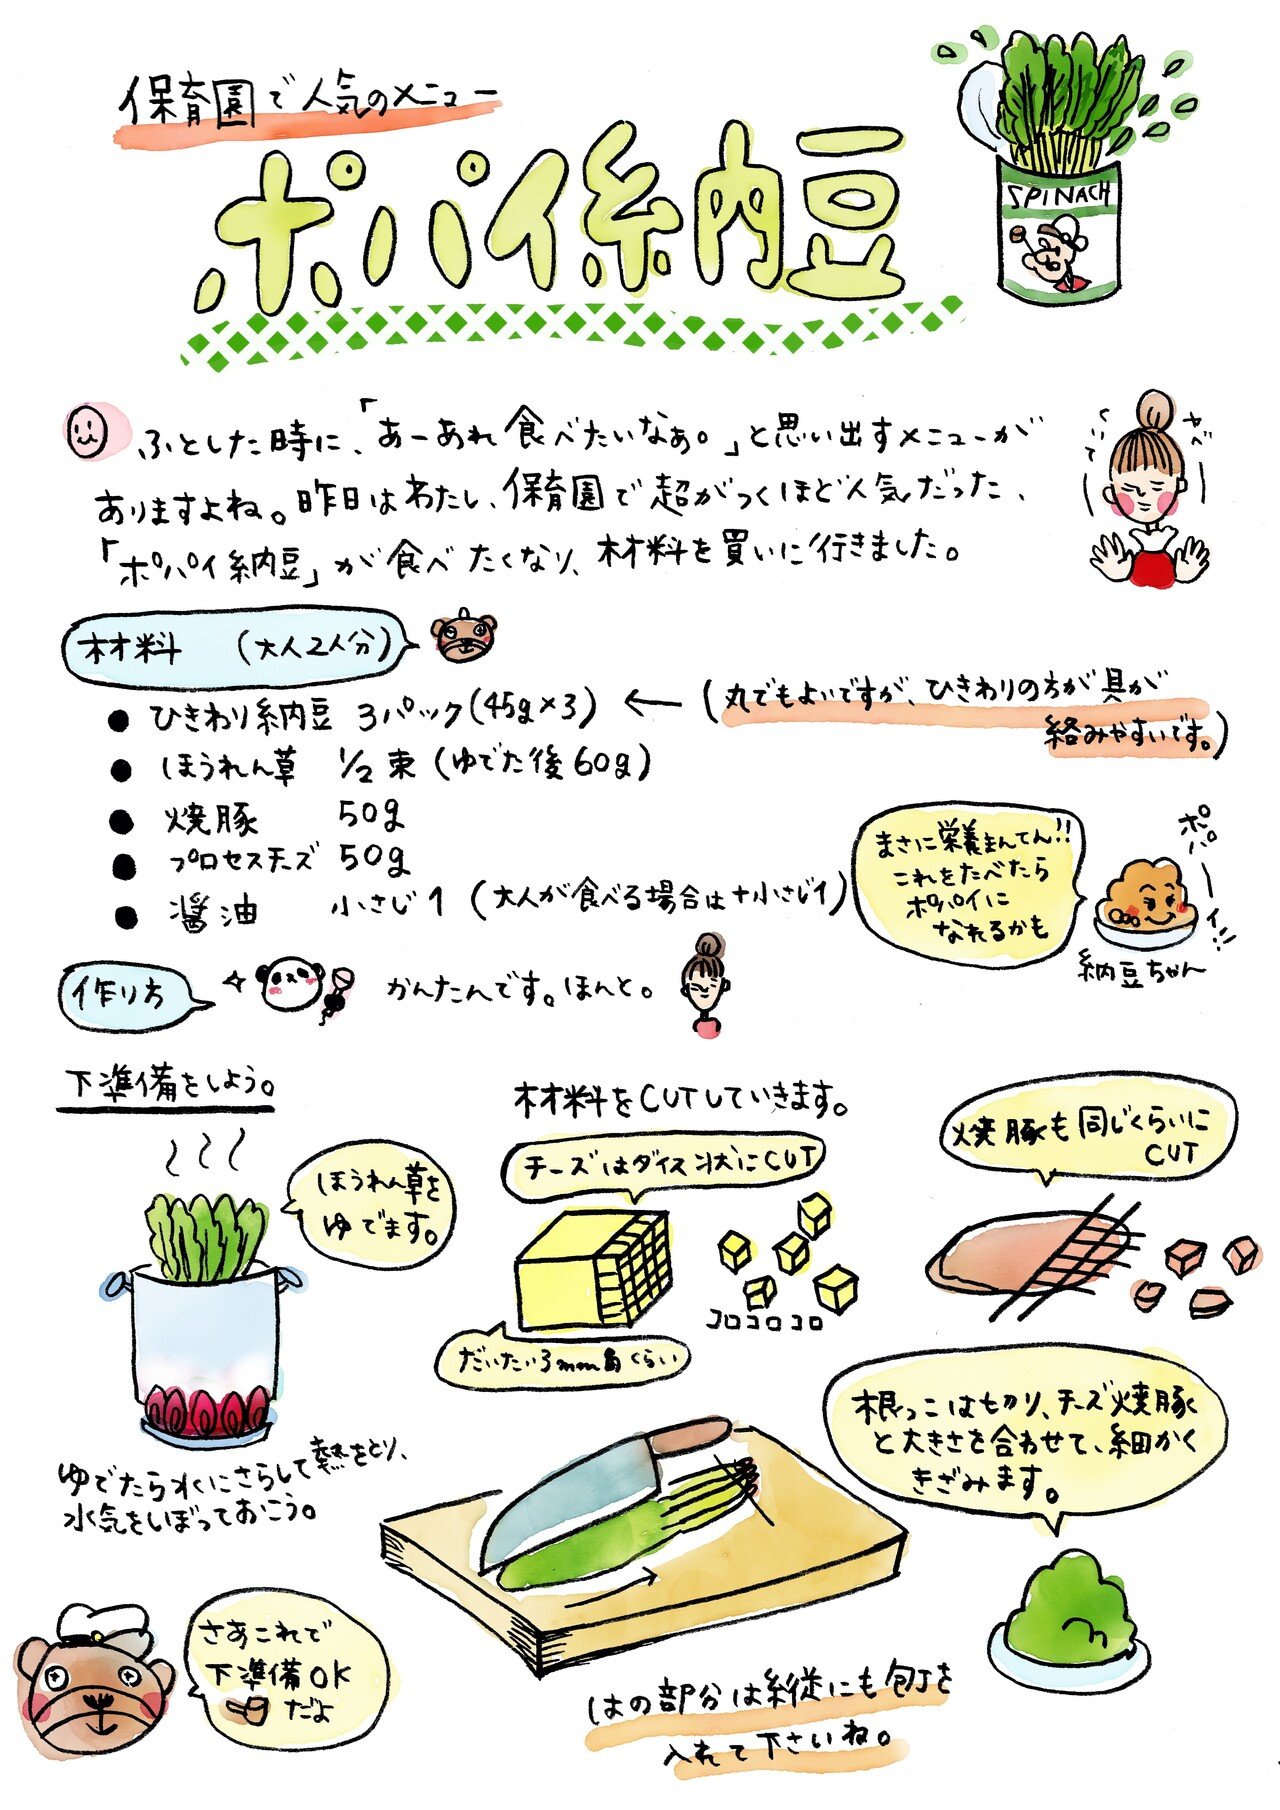 保育園で人気のメニュー
ポパイ納豆
SPINACH
ふとした時に、「あーあれ食べたいなぁ。」と思い出すメニューが
ありますよね。昨日はわたし、保育園で超がつくほど人気だった、
「ポパイ納豆」が食べたくなり、材料を買いに行きました。
材料 (大人2人分)
● ひきわり納豆 3パック(45g×3) ← (丸でもよいですが、ひきわりの方が具が
絡みやすいです。)
● ほうれん草 1/2束 (ゆでた後60g)
● 焼豚 50g
● プロセスチーズ 50g
● 醤油 小さじ1 (大人が食べる場合は+小さじ1)
まさに栄養まんてん!!
これをたべたら
ポパイに
なれるかも
ポパーイ!!
納豆ちゃん
作り方
かんたんです。ほんと。
下準備をしよう。
ほうれん草を
ゆでます。
ゆでたら水にさらして熱をとり、
水気をしぼっておこう。
材料をCUTしていきます。
チーズはダイス状にCUT
コロコロコロ
だいたい3mm角くらい
焼豚も同じくらいに
CUT
根っこは切り、チーズ焼豚
と大きさを合わせて、細かく
きざみます。
はの部分は縦にも包丁を
入れて下さいね。
さあこれで
下準備OK
だよ